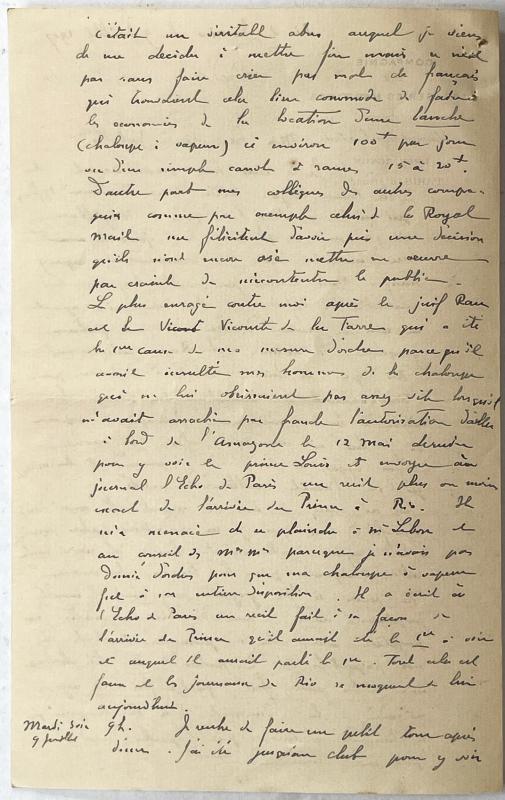 C'était un véritable abus auquel je viens
de me décider à mettre fin mais ce n'est
pas sans faire crier pas mal de français
qui trouvaient cela bien commode de
les économies de la location d'une lanche
(chaloupe à vapeur) à environ 100f par jour
ou d'un simple canot à rames 15 à 20f.
D'autre part mes collègues des autres compa-
gnies comme par exemple celui de la Royal
Mail me félicitent d'avoir pris une décision
qu'ils n'ont encore osé mettre en œuvre
par crainte de mécontenter le public.
Le plus enragé contre moi après le juif
est le Vicomte de la Tarre qui a été
la 1ere cause de ma mesure d'ordre parce qu'il
avait insulté mes hommes de la chaloupe
qui ne lui obéissaient pas assez vite lorsqu'il
m'avait arraché par fraude l'autorisation d'aller
à bord de l'Amazone le 12 Mai dernier
pour y voir le prince Louis et envoyer au
journal l'Echo de Paris un récit plus ou moins
exact de l'arrivée du Prince à Rio. Il
m'a menacé de se plaindre à Mr Lebon et
au conseil des Mies Mmes parce que je n'avais pas
donné d'ordres pour que ma chaloupe à vapeur
fut à son entière disposition. Il a écrit à
l'Echo de Paris un récit fait à sa façon de
l'arrivée du Prince qu'il aurait été le 1er à voir
et auquel il aurait parlé le 1er. Tout cela est
faux et les journaux de Rio se moquent de lui
aujourd'hui.
Mardi soir
9 Juillet
9h. Je rentre de faire un petit tour après
dîner. J'ai été jusqu'au club pour y voir